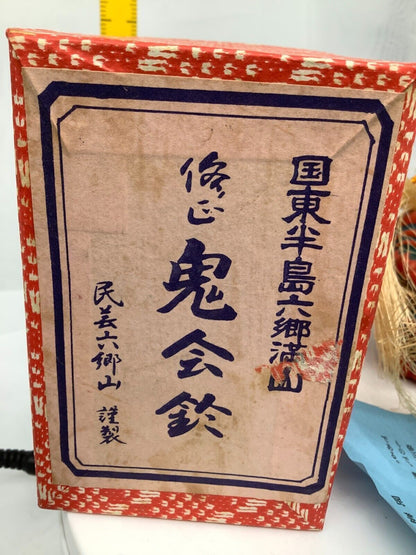 国東半島六郷満山
修正
鬼会鈴
民芸六郷山 謹製